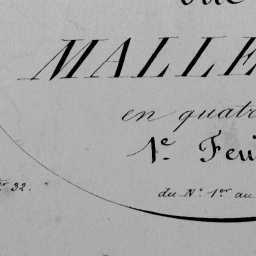 MALLE
en quatr
1e. Feui
32.
du No. 1er au